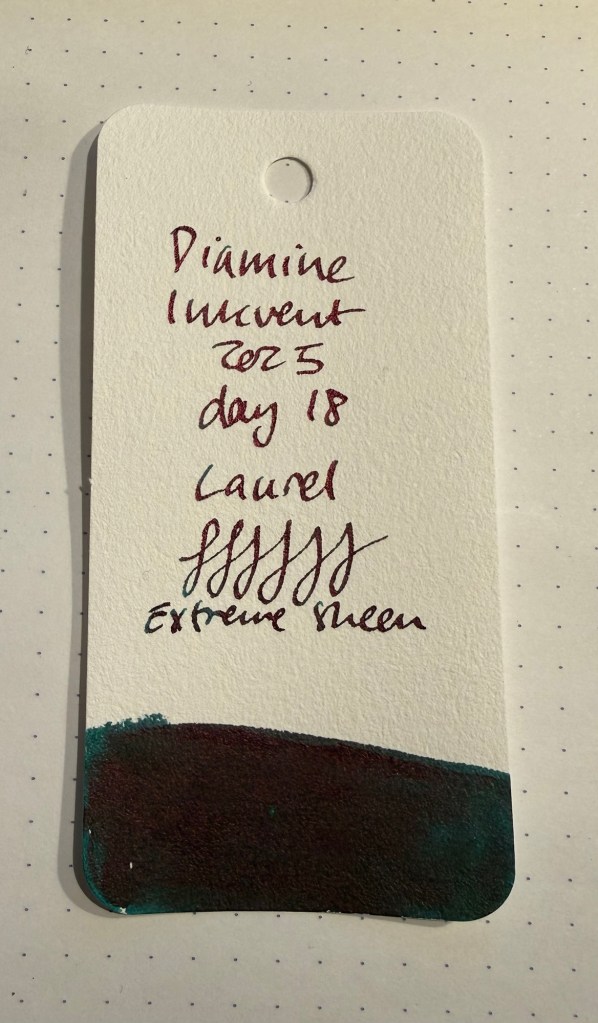 Diamine
Inkvent
2025
day 18
Laurel
Extreme Sheen